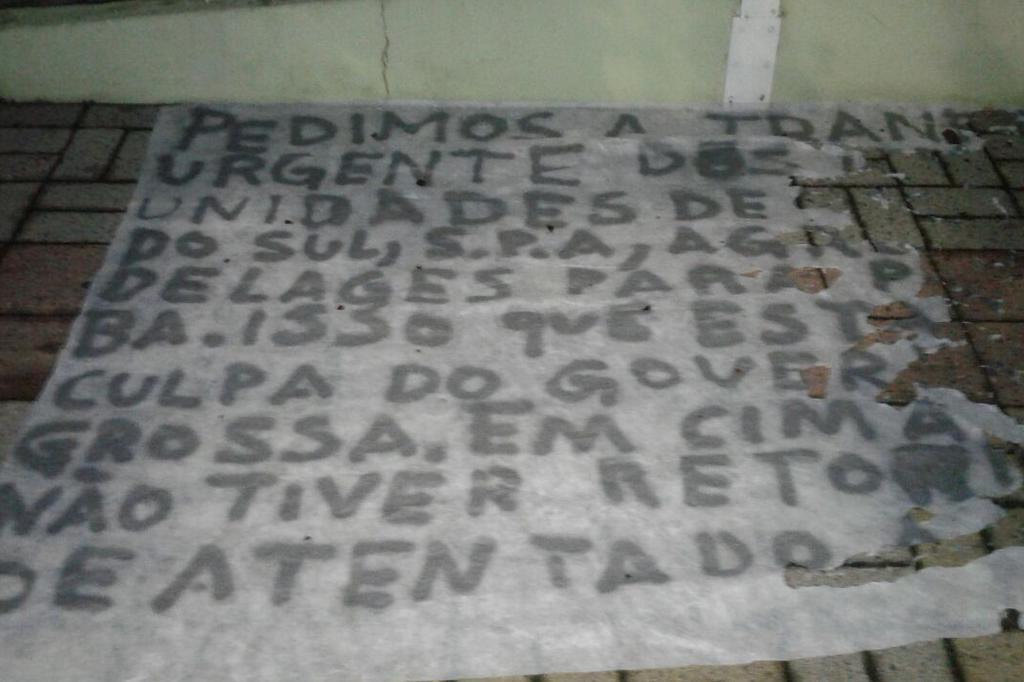 PEDIMOS A TRAN
URGENTE DOS
UNIDADES DE
DO SUL, S.P.A, AGRL
DELAGES PARA P
BA. ISSO QUE ESTA
CULPA DO GOVER
GROSSA. EM CIMA
NÃO TIVER RETO
DE ATENTADO